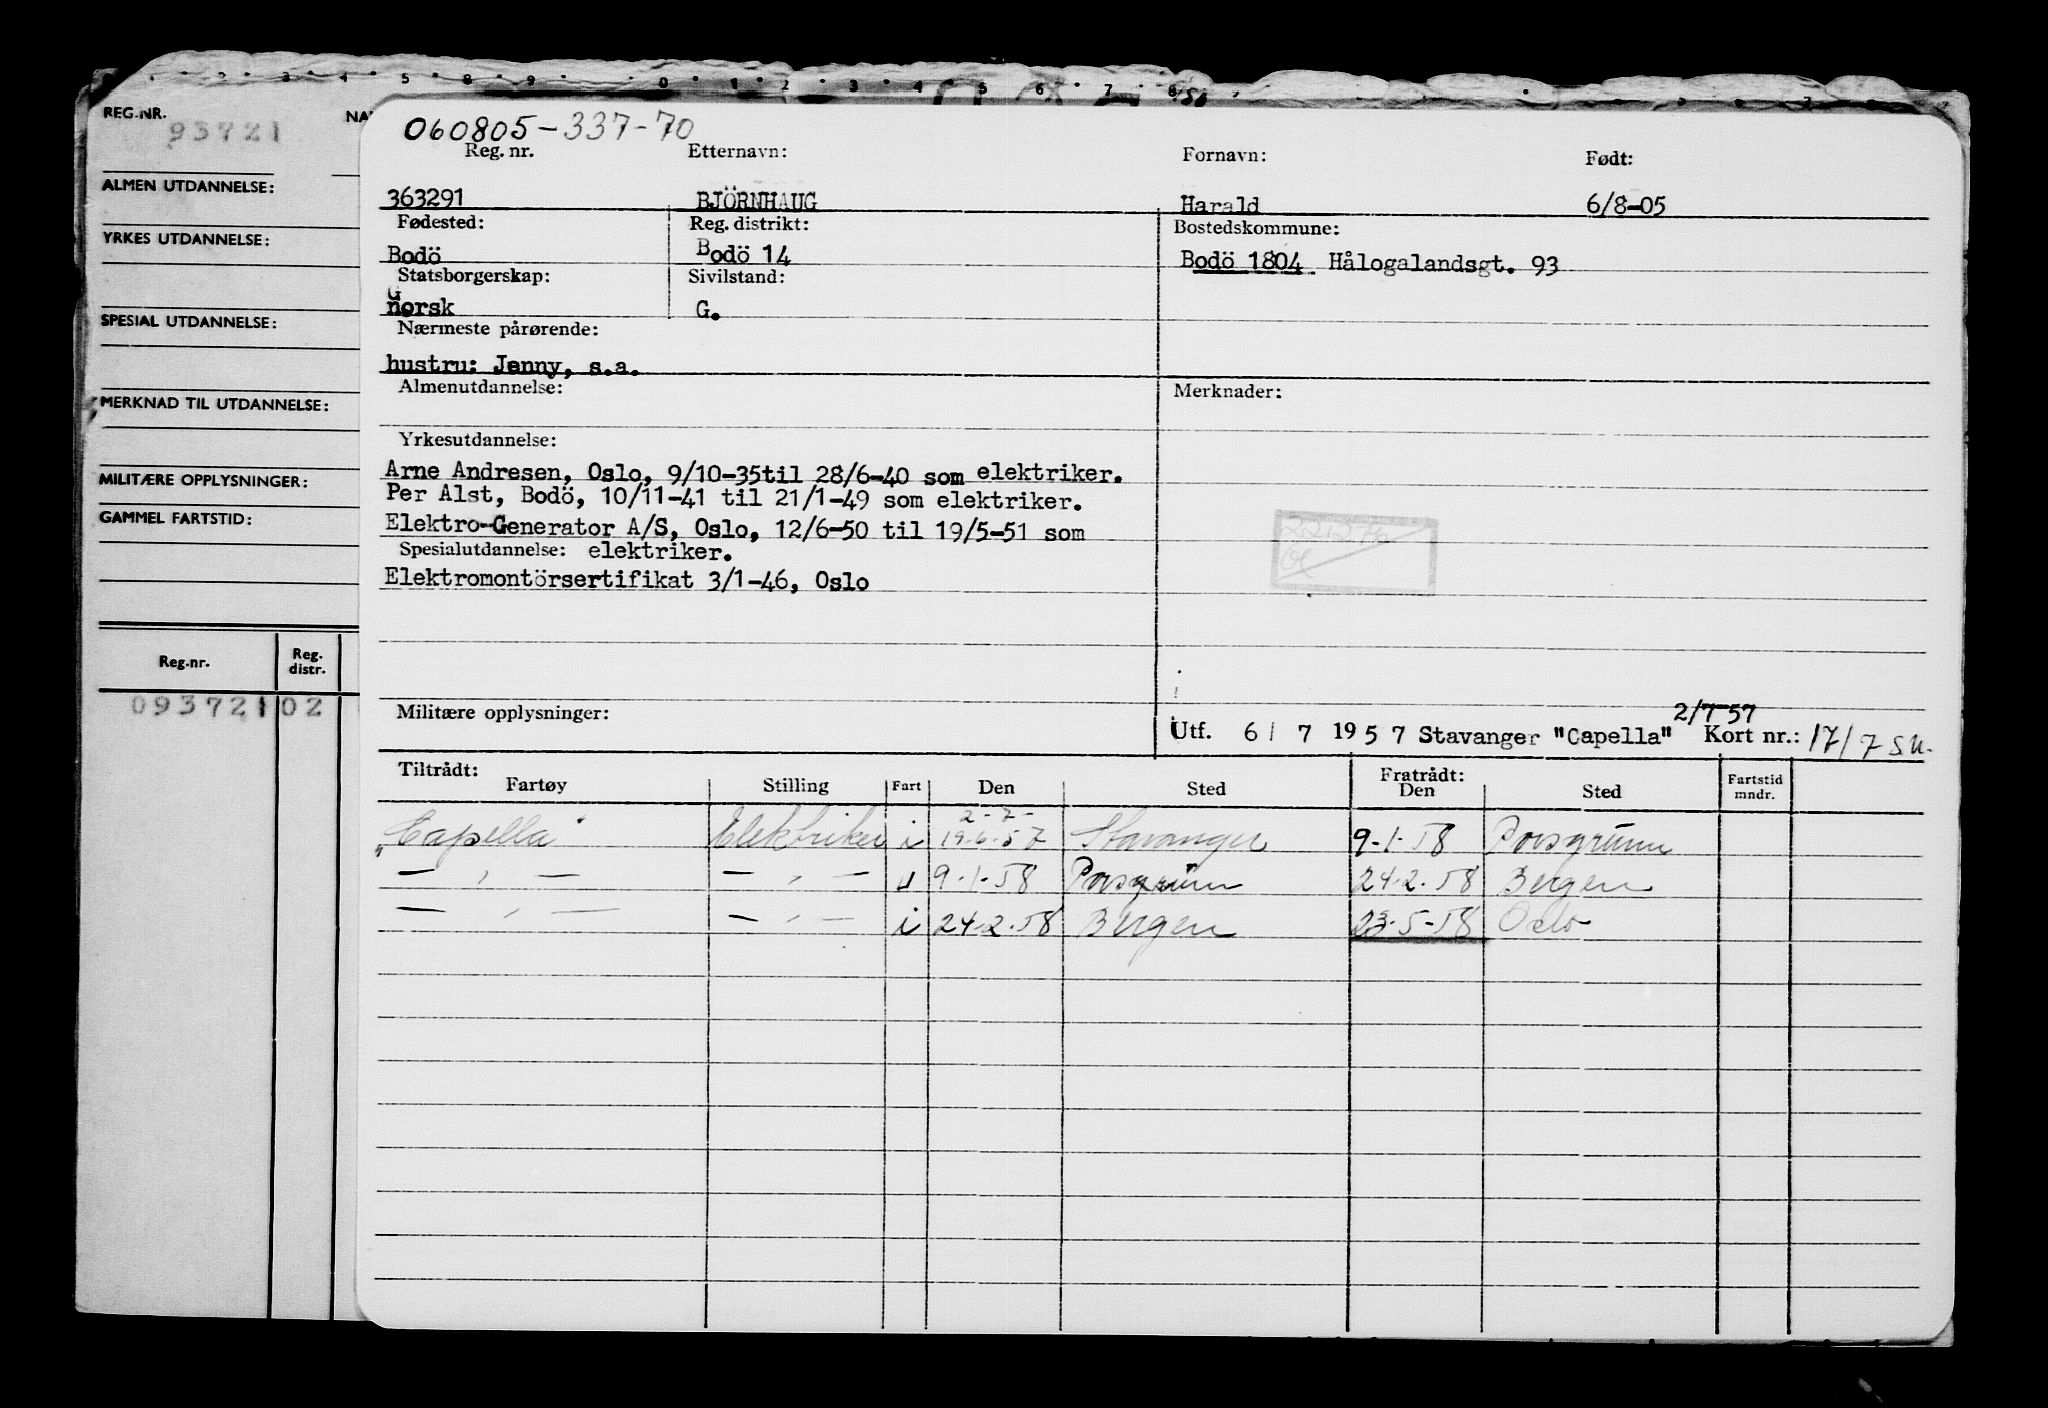 REG.NR.
93721
ALMEN UTDANNELSE:
YRKES UTDANNELSE:
SPESIAL UTDANNELSE:
MERKNAD TIL UTDANNELSE:
MILITÆRE OPPLYSNINGER:
GAMMEL FARTSTID:
Reg.nr. Reg. distr.
093721 02
060805-337-70
Reg. nr. Etternavn: Fornavn: Født:
363291 BJÖRNHAUG Harald 6/8-05
Fødested: Reg. distrikt: Bostedskommune:
Bodö Bodö 14 Bodö 1804 Hålogalandsgt. 93
Statsborgerskap: Sivilstand:
norsk G.
Nærmeste pårørende:
hustru: Jenny, s.a.
Almenutdannelse: Merknader:
Yrkesutdannelse:
Arne Andresen, Oslo, 9/10-35til 28/6-40 som elektriker.
Per Alst, Bodö, 10/11-41 til 21/1-49 som elektriker.
Elektro-Generator A/S, Oslo, 12/6-50 til 19/5-51 som
Spesialutdannelse: elektriker.
Elektromontörsertifikat 3/1-46, Oslo
Militære opplysninger:
2/7-57
Utf. 6/ 7 1957 Stavanger "Capella" Kort nr.: 17/7 su.
Tiltrådt: Fratrådt:
Fartøy Stilling Fart Den Sted Den Sted Fartstid mndr.
2-7-
"Capella" Elektriker i 19.6.57 Stavanger 9-1-58 Porsgrunn
— " — — " — u 9-1-58 Porsgrunn 24-2-58 Bergen
— " — — " — i 24-2-58 Bergen 23-5-58 Oslo